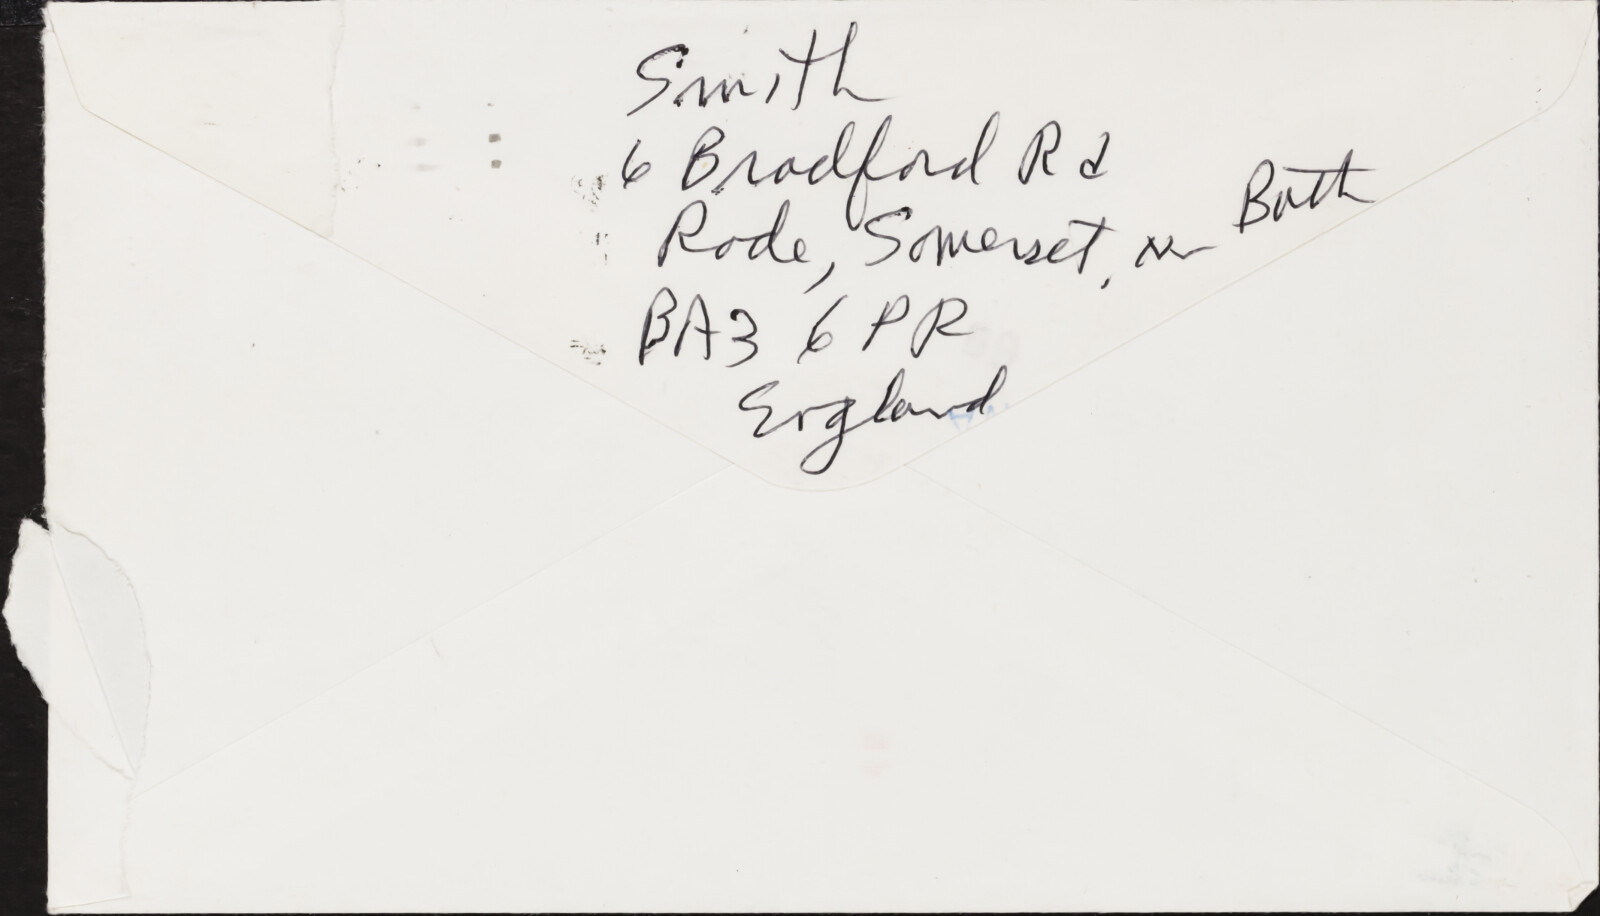 Smith
6 Bradford Rd
Rode, Somerset, nr Bath
BA3 6PR
England